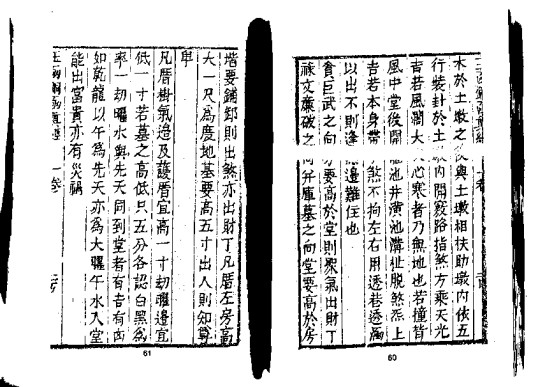 水於土墩之後與土墩相扶助墩內依五
行裝卦於土墩內開竅路指煞方乘天光
吉若風濶大人心寒者乃無地也若撞背
風中堂後開池井潢池溝扯脫煞炁上
吉若本身帶煞不拘左右用透巷透
以出不則逢邊難任也
貪巨武之向要高於堂則聚氣出財丁
祿文廉破之向并庫墓之向堂要高於房
60
堦要鋪則出煞亦出財丁凡厝左房高
大一尺為度地墓要高五寸出人則知尊
卑
凡厝掛氣邊及護厝宜高一寸劫曜邊宜
低一寸若墓之高低只五分各認白黑為
率一劫曜水與先天同到堂者有吉有凶
如乾龍以午為先天亦為大曜午水入堂
能出富貴亦有災禍
一卷
61